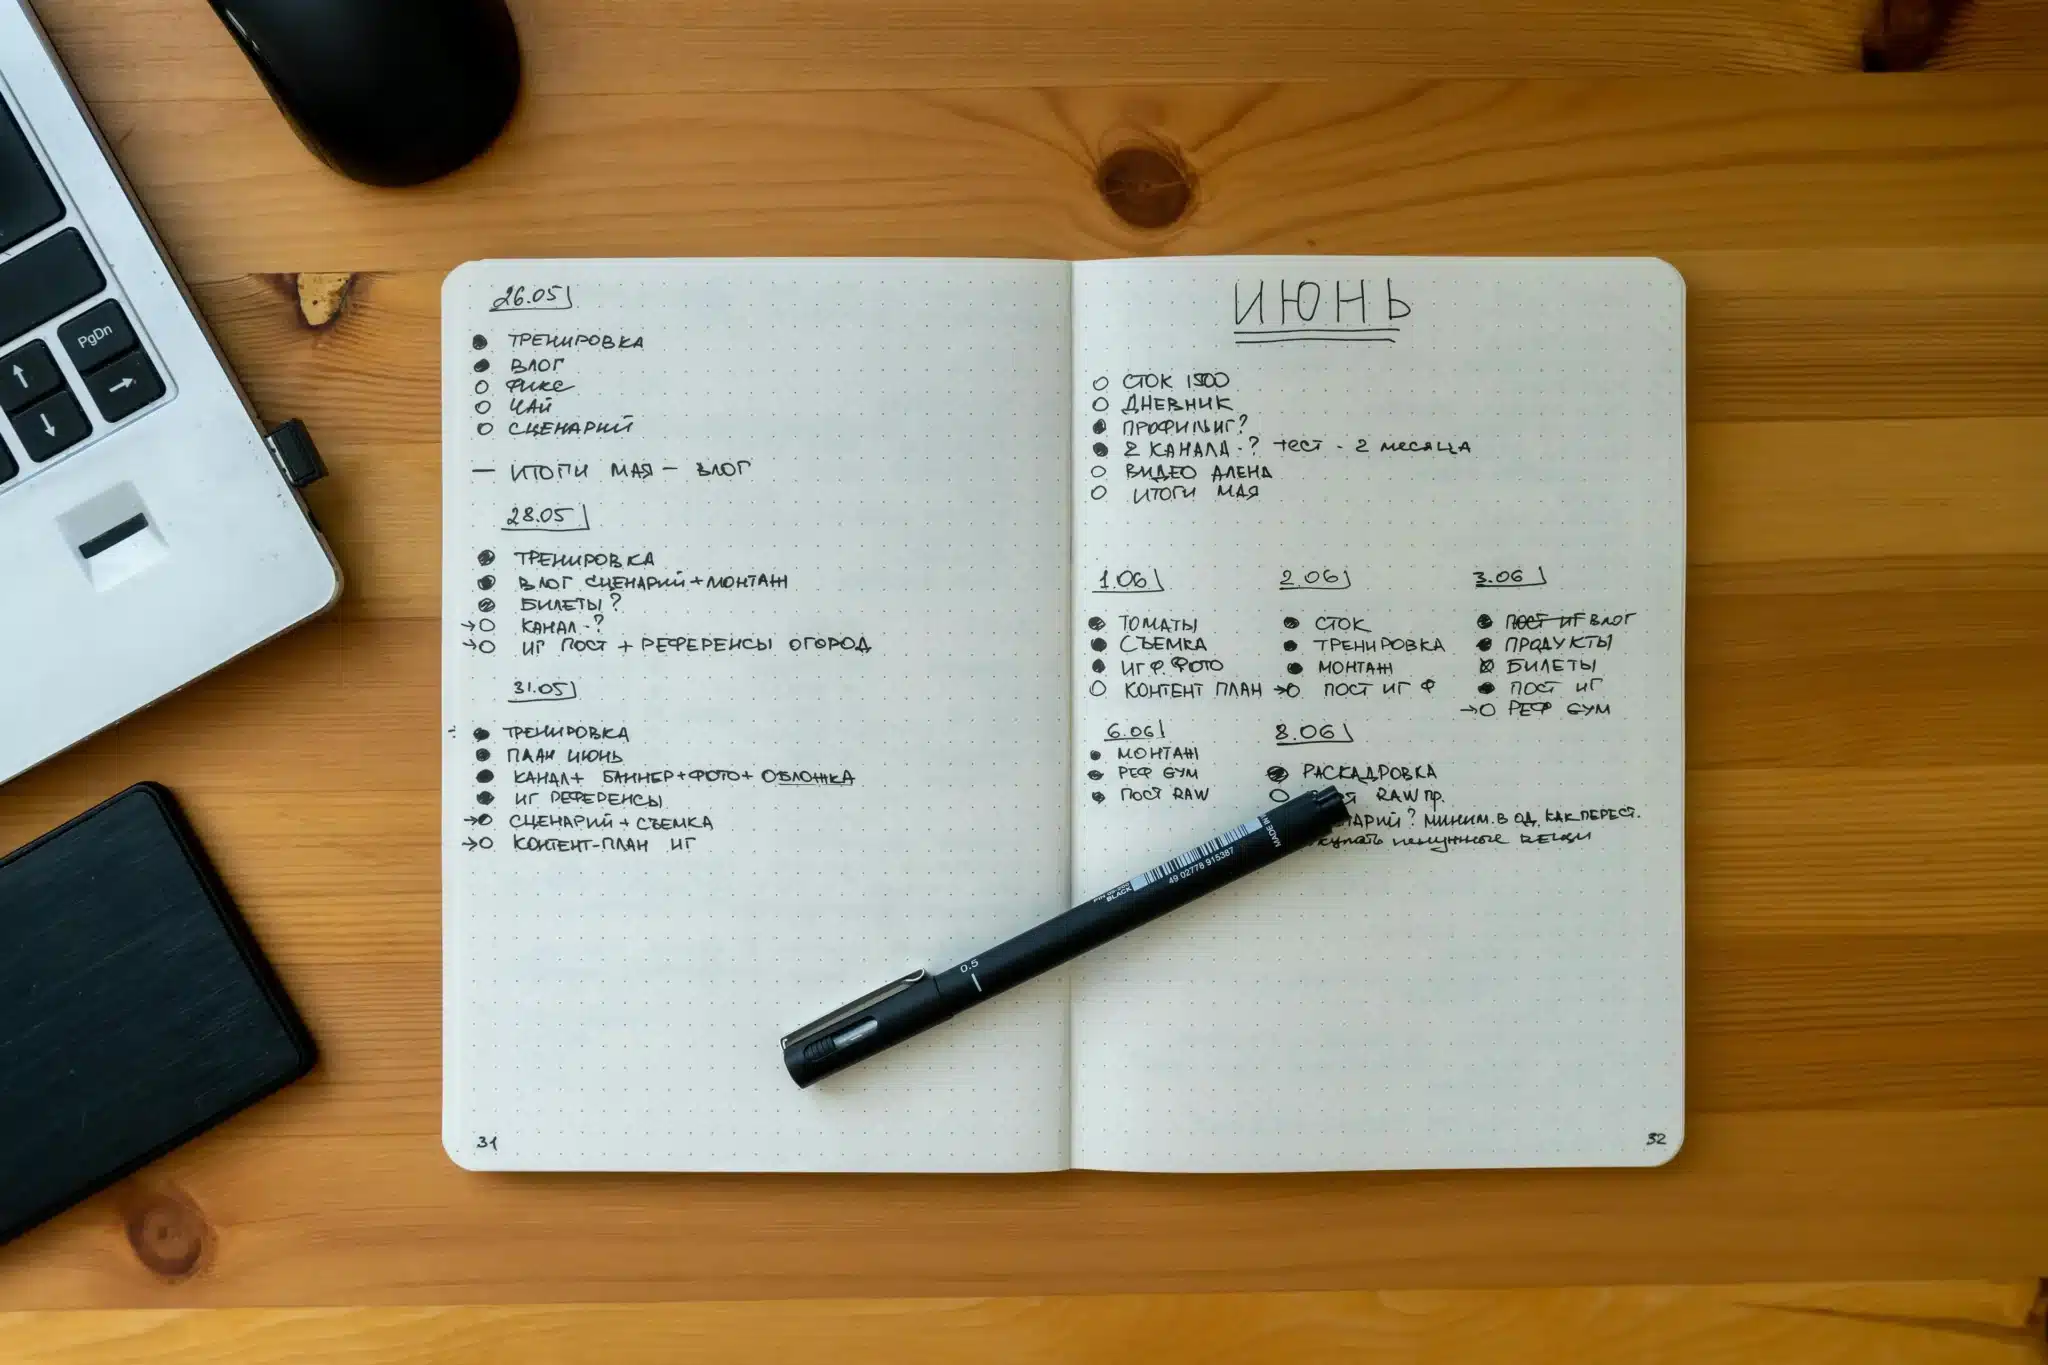 PgDn
26.05
ТРЕНИРОВКА
ВЛОГ
ФИКС
ЧАЙ
СЦЕНАРИЙ
— ИТОГИ МАЯ — ВЛОГ
28.05
ТРЕНИРОВКА
ВЛОГ СЦЕНАРИЙ+МОНТАЖ
БИЛЕТЫ?
→ КАНАЛ-?
→ ИГ ПОСТ + РЕФЕРЕНСЫ ОГОРОД
31.05
ТРЕНИРОВКА
ПЛАН ИЮНЬ
КАНАЛ+ БАННЕР+ФОТО+ ОБЛОЖКА
ИГ РЕФЕРЕНСЫ
→ СЦЕНАРИЙ + СЪЕМКА
→ КОНТЕНТ-ПЛАН ИГ
31
ИЮНЬ
СТОК 1500
ДНЕВНИК
ПРОФИЛЬ ИГ?
2 КАНАЛА-? ТЕСТ - 2 МЕСЯЦА
ВИДЕО АЛЕНА
ИТОГИ МАЯ
1.06
ТОМАТЫ
СЪЕМКА
ИГ Ф. ФОТО
КОНТЕНТ ПЛАН
2.06
СТОК
ТРЕНИРОВКА
МОНТАЖ
→ ПОСТ ИГ Ф
3.06
ПОСТ ИГ ВЛОГ
ПРОДУКТЫ
БИЛЕТЫ
ПОСТ ИГ
→ РЕФ GYM
6.06
МОНТАЖ
РЕФ GYM
ПОСТ RAW
8.06
РАСКАДРОВКА
RAW ПР.
? МИНИМ. В ОД. КАК ПЕРЕСТ.
ненужные вещи
32
0.5
BLACK
49 02778 915387
MADE IN